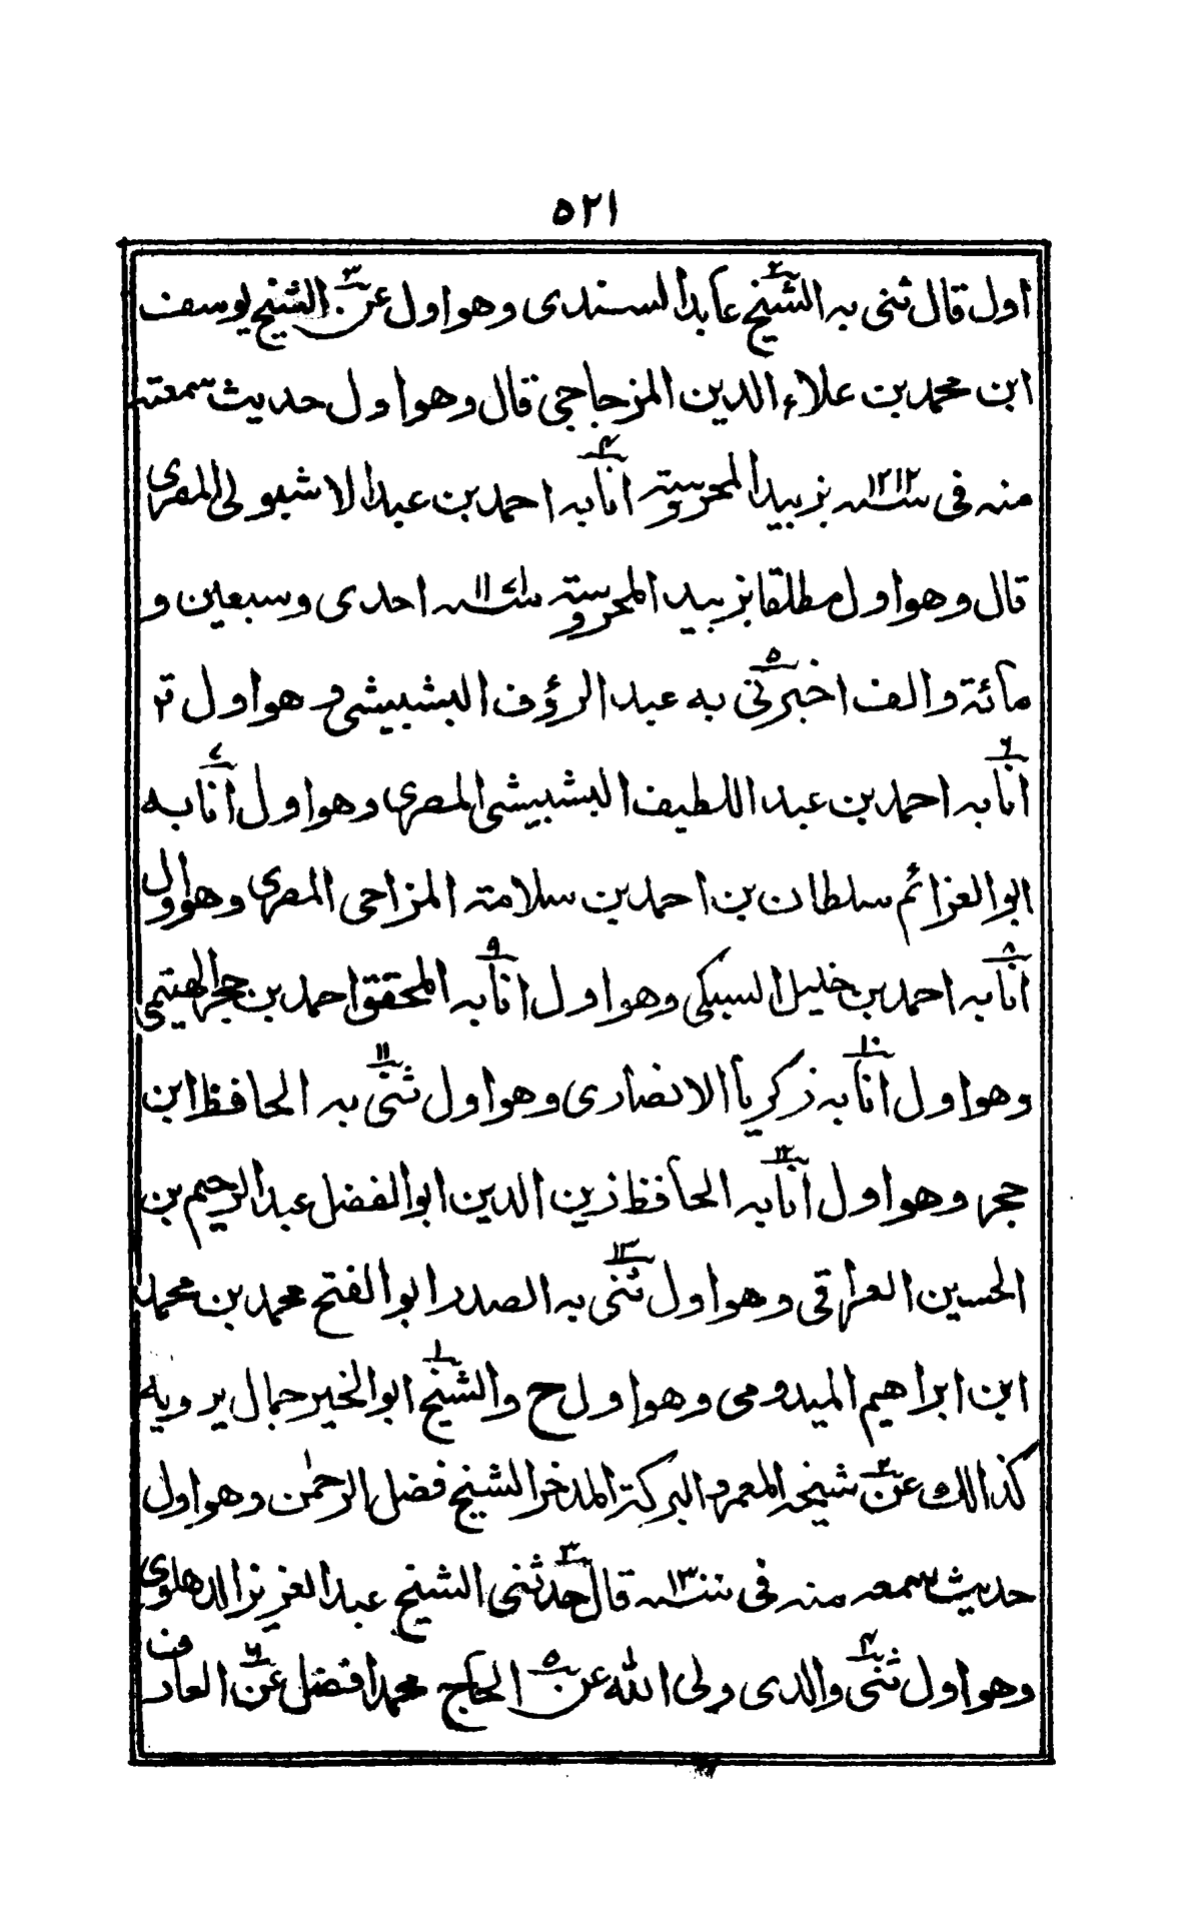 ٥٢١
اول قال ثنی به ٢ الشیخ عابد السندی وهو اول عن ٣ الشیخ یوسف
ابن محمد بن علاء الدین المزجاجی قال وهو اول حدیث سمعته
منه فی سنه ١٢١٢ بزبید المحروسة ٤ انا به احمد بن عبد الاشبولی المصری
قال وهو اول مطلقا بزبید المحروسة سنه ١١٧١ احدی وسبعین و
مائة والف اخبرنی ٥ به عبد الرؤف البشبیشی وهو اول
٦ انا به احمد بن عبد اللطیف البشبیشی المصری وهو اول ٧ انا به
ابو العزائم سلطان بن احمد بن سلامة المزاحی المصری وهو اول
٨ انا به احمد بن خلیل السبکی وهو اول ٩ انا به المحقق احمد بن حجر الهیتمی
وهو اول ١٠ انا به زکریا الانصاری وهو اول ١١ ثنی به الحافظ ابن
حجر وهو اول ١٢ انا به الحافظ زین الدین ابو الفضل عبد الرحیم بن
الحسین العراقی وهو اول ١٣ ثنی به الصدر ابو الفتح محمد بن محمد
ابن ابراهیم المیدومی وهو اول ح والشیخ ١ ابو الخیر جمال یرویه
کذالک عن ٢ شیخه المعمر والبرکة المدخر الشیخ فضل الرحمٰن وهو اول
حدیث سمعه منه فی سنه ١٣ قال ٣ حدثنی الشیخ عبد العزیز الدهلوی
وهو اول ٤ ثنی والدی ولی الله عن ٥ الحاج محمد افضل عن ٦ العارف